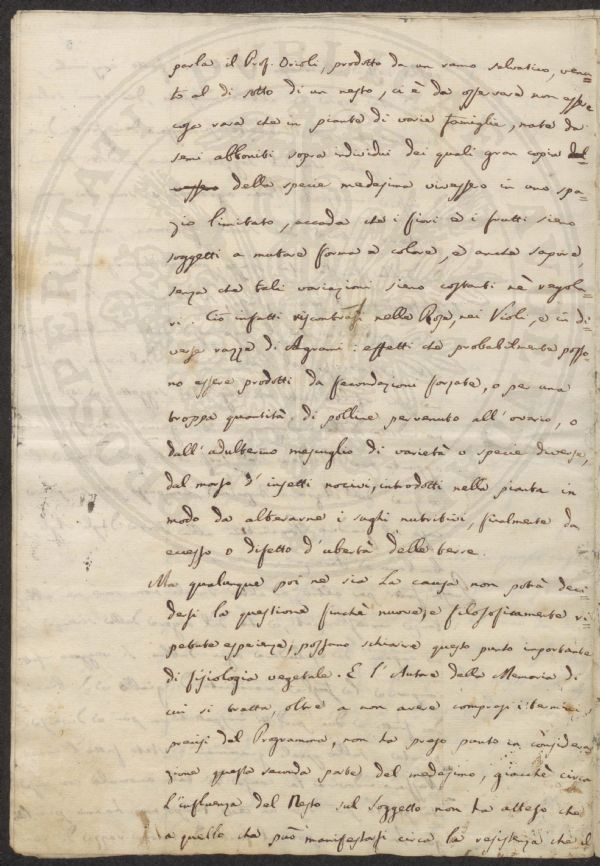 parla il Prof. Orioli, prodotto da un ramo salvatico, venu=
to al di sotto di un nesto, ci è da osservare non essere
cosa rara che in piante di varie famiglie, nate da
semi abboniti sopra individui dei quali gran copia del
vessero della specie medesima vivessero in uno spa=
zio limitato, accada che i fiori e i frutti sieno
soggetti a mutare forma e colore, e anche sapore,
senza che tali variazioni sieno costanti nè regola=
ri. Ciò infatti riscontrasi nelle Rose, nei Violi, e in di=
verse razze di Agrumi: effetti che probabilmente posso
no essere prodotti da fecondazioni forzate, o per una
troppa quantità di polline pervenuto all'ovario, o
dall'adulterino mescuglio di varietà o specie diverse,
dal morso d'insetti nocivi, introdotti nella pianta in
modo da alterarne i sughi nutritivi, finalmente da
eccesso o difetto d'ubertà delle terre.
Ma qualunque poi ne sia la causa non potrà deci=
dersi la questione finchè nuove, e filosoficamente ri=
petute esperienze, possano schiarire questo punto importante
di fisiologia vegetale. E l'Autore della Memoria di
cui si tratta, oltre a non avere compresi i termini
precisi del Programma, non ha preso punto in considera
zione questa seconda parte del medesimo, giacchè circa
l'influenza del Nesto sul Soggetto non ha atteso che
a quello che può manifestarsi circa la resistenza che il